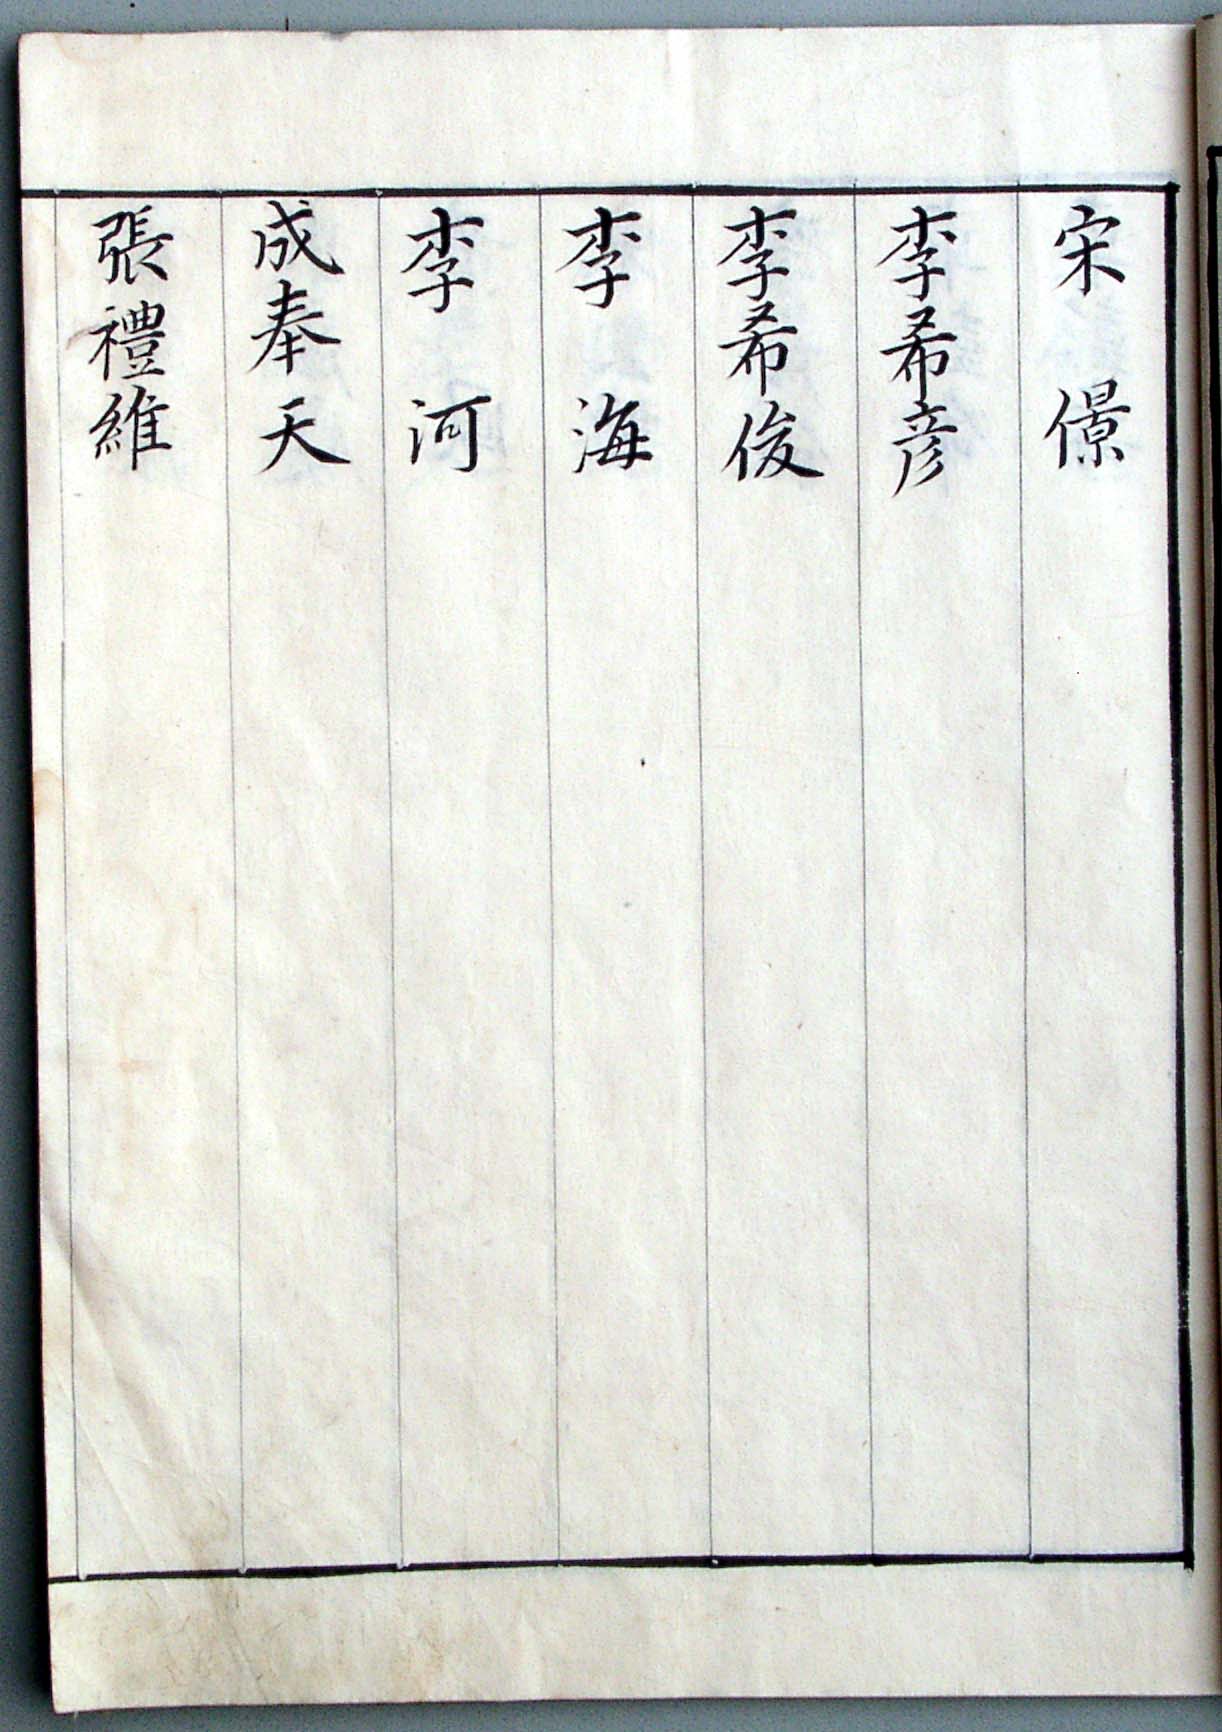 宋憬
李希彦
李希俊
李海
李河
成奉天
張禮維